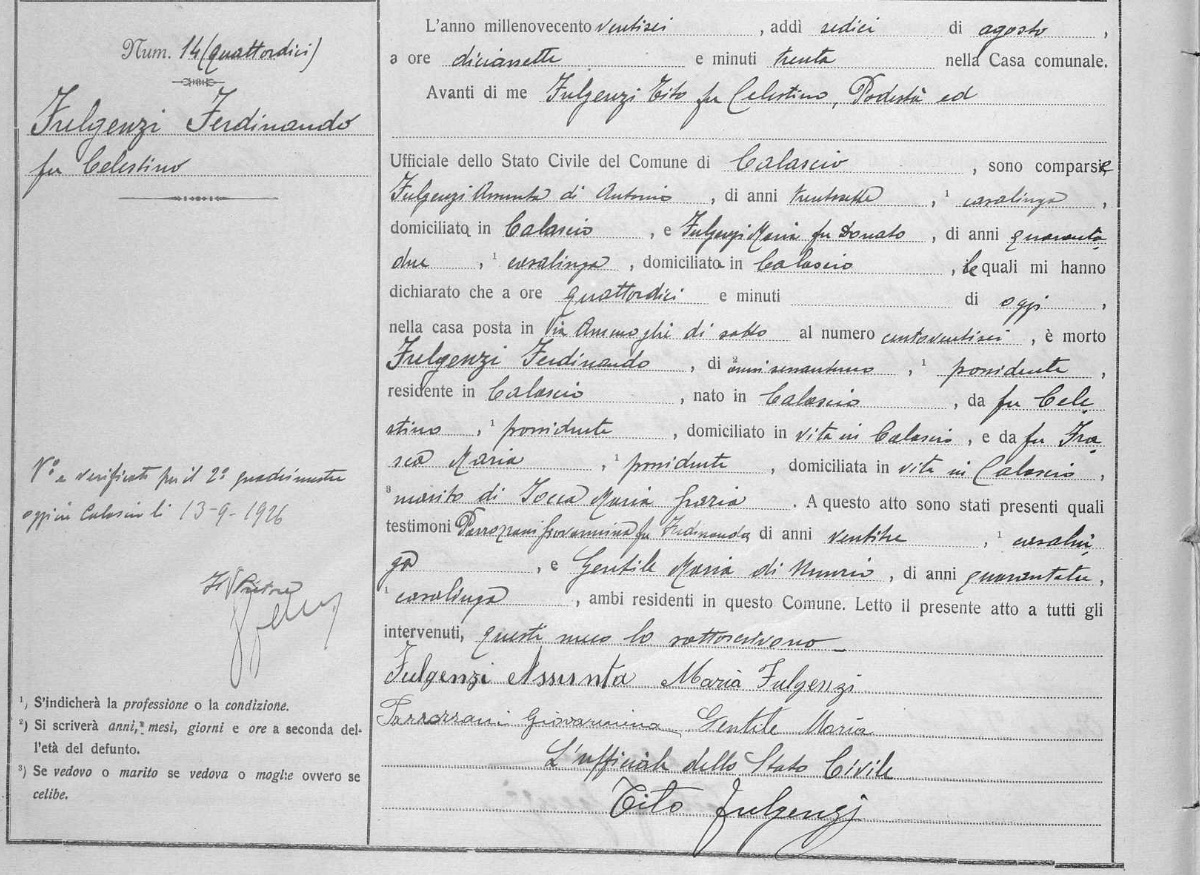 Num. 14 (quattordici)
Fulgenzi Ferdinando
fu Celestino
N° e verificato per il 2° quadrimestre
oggi in Calascio li 13-9-1926
Il Pretore
¹) S'indicherà la professione o la condizione.
²) Si scriverà anni, mesi, giorni e ore a seconda del-
l'età del defunto.
³) Se vedovo o marito se vedova o moglie ovvero se
celibe.
L'anno millenovecento ventisei, addì sedici di agosto,
a ore diciassette e minuti trenta nella Casa comunale.
Avanti di me Fulgenzi Tito fu Celestino, Podestà ed
Ufficiale dello Stato Civile del Comune di Calascio, sono comparse
Fulgenzi Assunta di Antonio, di anni trentasette, ¹ casalinga,
domiciliata in Calascio, e Fulgenzi Maria fu Donato, di anni quaranta
due, ¹ casalinga, domiciliata in Calascio, le quali mi hanno
dichiarato che a ore quattordici e minuti di oggi,
nella casa posta in via di sotto al numero centoventisei, è morto
Fulgenzi Ferdinando, di ² anni sessantuno, ¹ possidente,
residente in Calascio, nato in Calascio, da fu Cele
stino, ¹ possidente, domiciliato in vita in Calascio, e da fu Fra
sca Maria, ¹ possidente, domiciliata in vita in Calascio,
³ marito di Jocca Maria Grazia. A questo atto sono stati presenti quali
testimoni Parrozzani Giovannina fu Ferdinando di anni ventitre, ¹ casalin
ga, e Gentile Maria di Nunzio, di anni quarantatre,
¹ casalinga, ambi residenti in questo Comune. Letto il presente atto a tutti gli
intervenuti, questi meco lo sottoscrivono
Fulgenzi Assunta Maria Fulgenzi
Parrozzani Giovannina Gentile Maria
L'ufficiale dello Stato Civile
Tito Fulgenzi